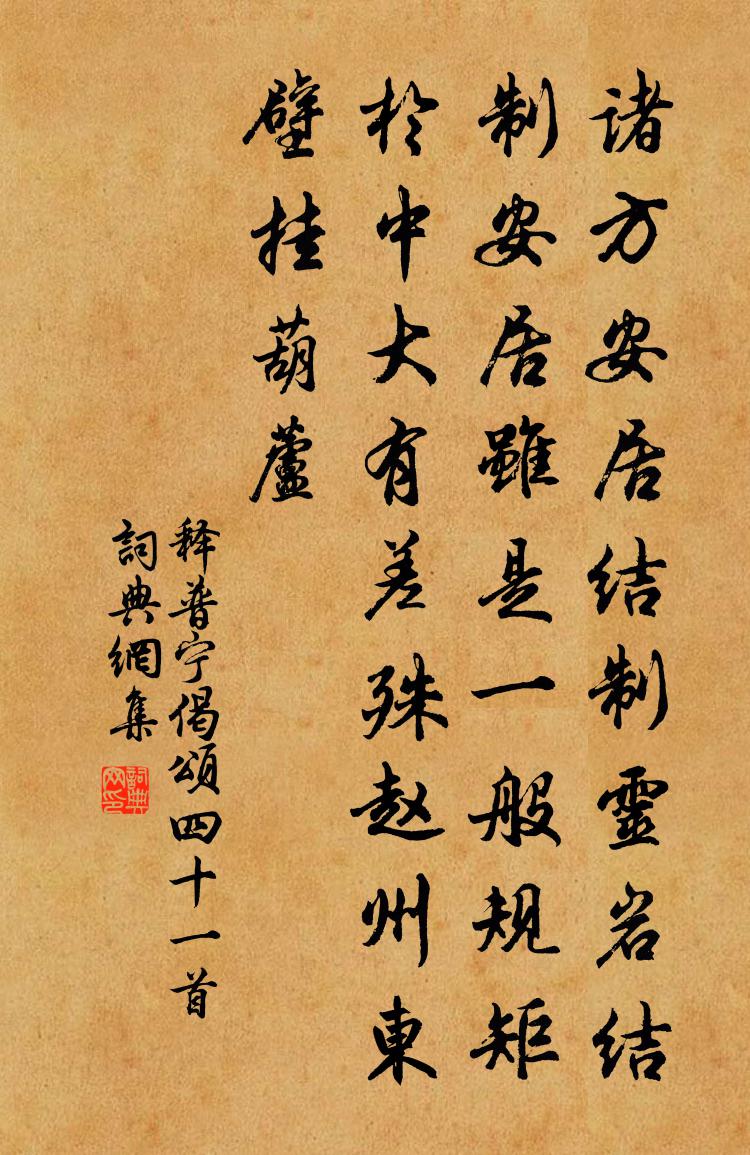 诸方安居结制靈岩结
制安居雖是一般规矩
於中大有差殊赵州東
壁挂葫蘆
释普宁偈頌四十一首
詞典網集
詞典
网印